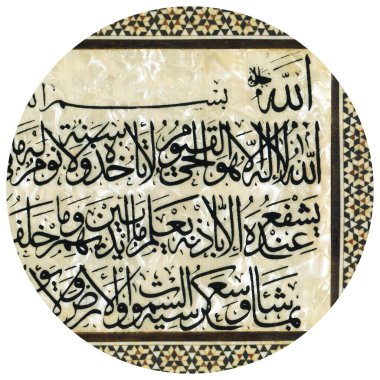 الله بسم
الله لا إله إلا هو الحي القيوم لا تأخذه سنة ولا نوم له ما
يشفع عنده إلا بإذنه يعلم ما بين أيديهم وما خلف
بما شاء وسع كرسيه السموات والأرض ولا